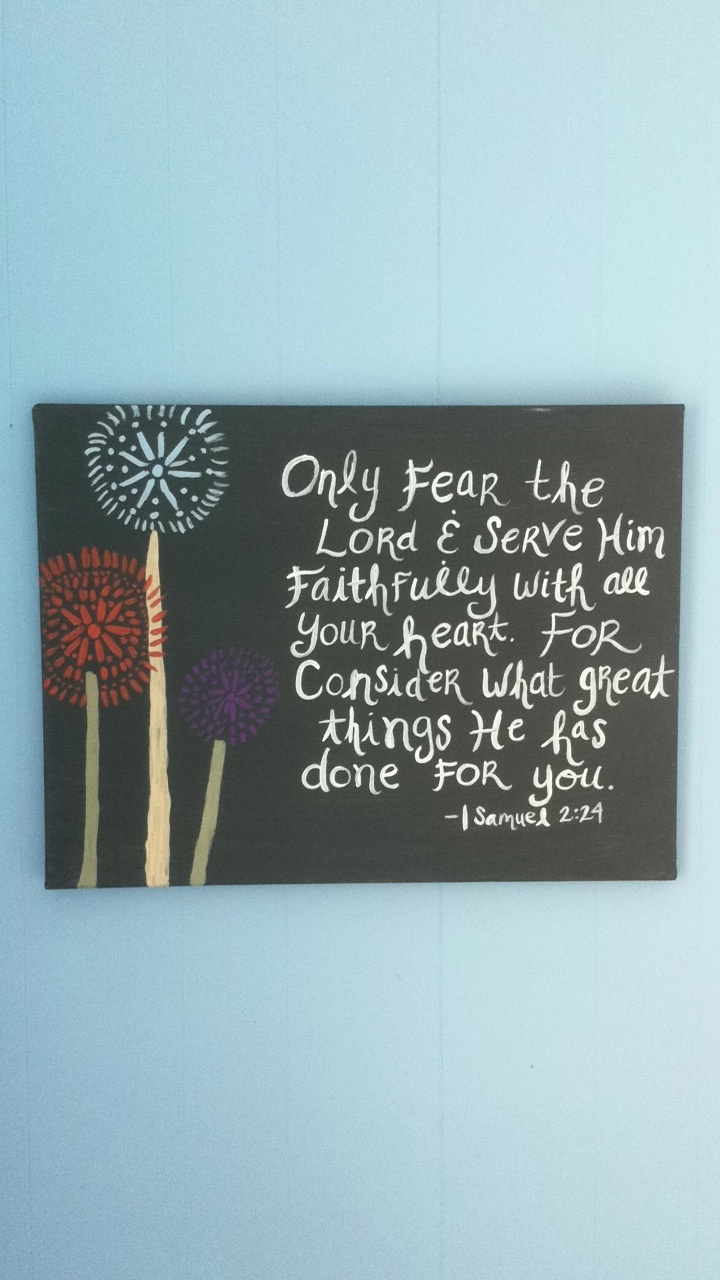 Only Fear the
Lord & Serve Him
Faithfully with all
your heart. For
Consider what great
things He has
done For you.
-1 Samuel 2:24